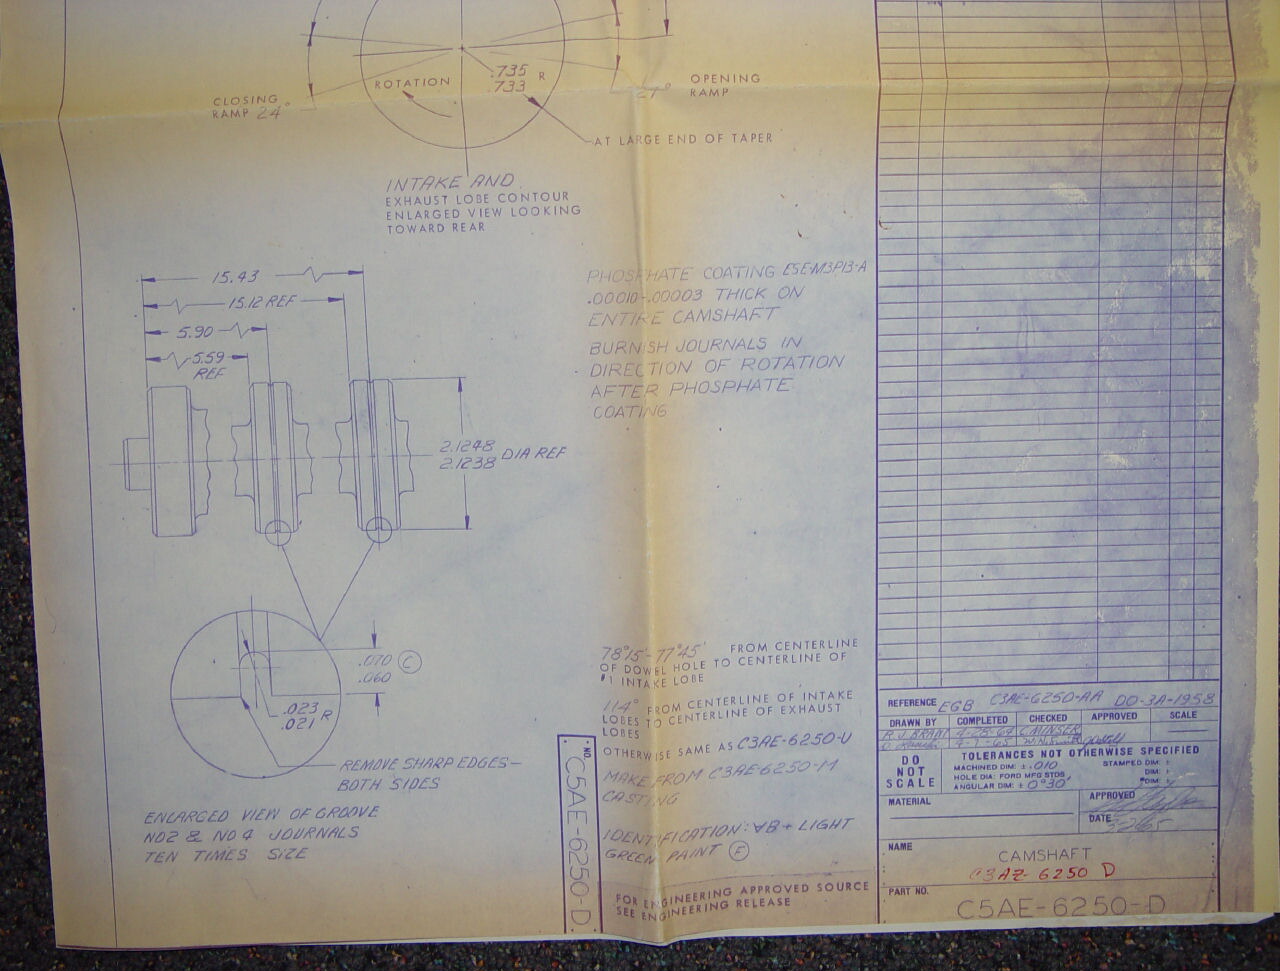 .735
.733 R
ROTATION
CLOSING
RAMP 24°
OPENING
RAMP 27°
AT LARGE END OF TAPER
INTAKE AND
EXHAUST LOBE CONTOUR
ENLARGED VIEW LOOKING
TOWARD REAR
15.43
15.12 REF
5.90
5.59
REF
2.1248
2.1238 DIA REF
PHOSPHATE COATING ESE-M3P13-A
.00010-.00003 THICK ON
ENTIRE CAMSHAFT
BURNISH JOURNALS IN
DIRECTION OF ROTATION
AFTER PHOSPHATE
COATING
.070 C
.060
.023
.021 R
REMOVE SHARP EDGES-
BOTH SIDES
ENLARGED VIEW OF GROOVE
NO2 & NO 4 JOURNALS
TEN TIMES SIZE
78°15'-77°45' FROM CENTERLINE
OF DOWEL HOLE TO CENTERLINE OF
#1 INTAKE LOBE
114° FROM CENTERLINE OF INTAKE
LOBES TO CENTERLINE OF EXHAUST
LOBES
OTHERWISE SAME AS C3AE-6250-U
MAKE FROM C3AE-6250-M
CASTING
IDENTIFICATION: ∀B + LIGHT
GREEN PAINT F
FOR ENGINEERING APPROVED SOURCE
SEE ENGINEERING RELEASE
NO. C5AE-6250-D
REFERENCE EGB C3AE-6250-AA DO-3A-1958
DRAWN BY COMPLETED CHECKED APPROVED SCALE
R.J. BRANT 4-28-64 C. MINSER
TOLERANCES NOT OTHERWISE SPECIFIED
DO
NOT
SCALE
MACHINED DIM: ± .010
HOLE DIA: FORD MFG STDS
ANGULAR DIM: ± 0°30'
STAMPED DIM: ±
DIM: ±
DIM: ±
MATERIAL
APPROVED
DATE
NAME
CAMSHAFT
C3AZ-6250 D
PART NO.
C5AE-6250-D